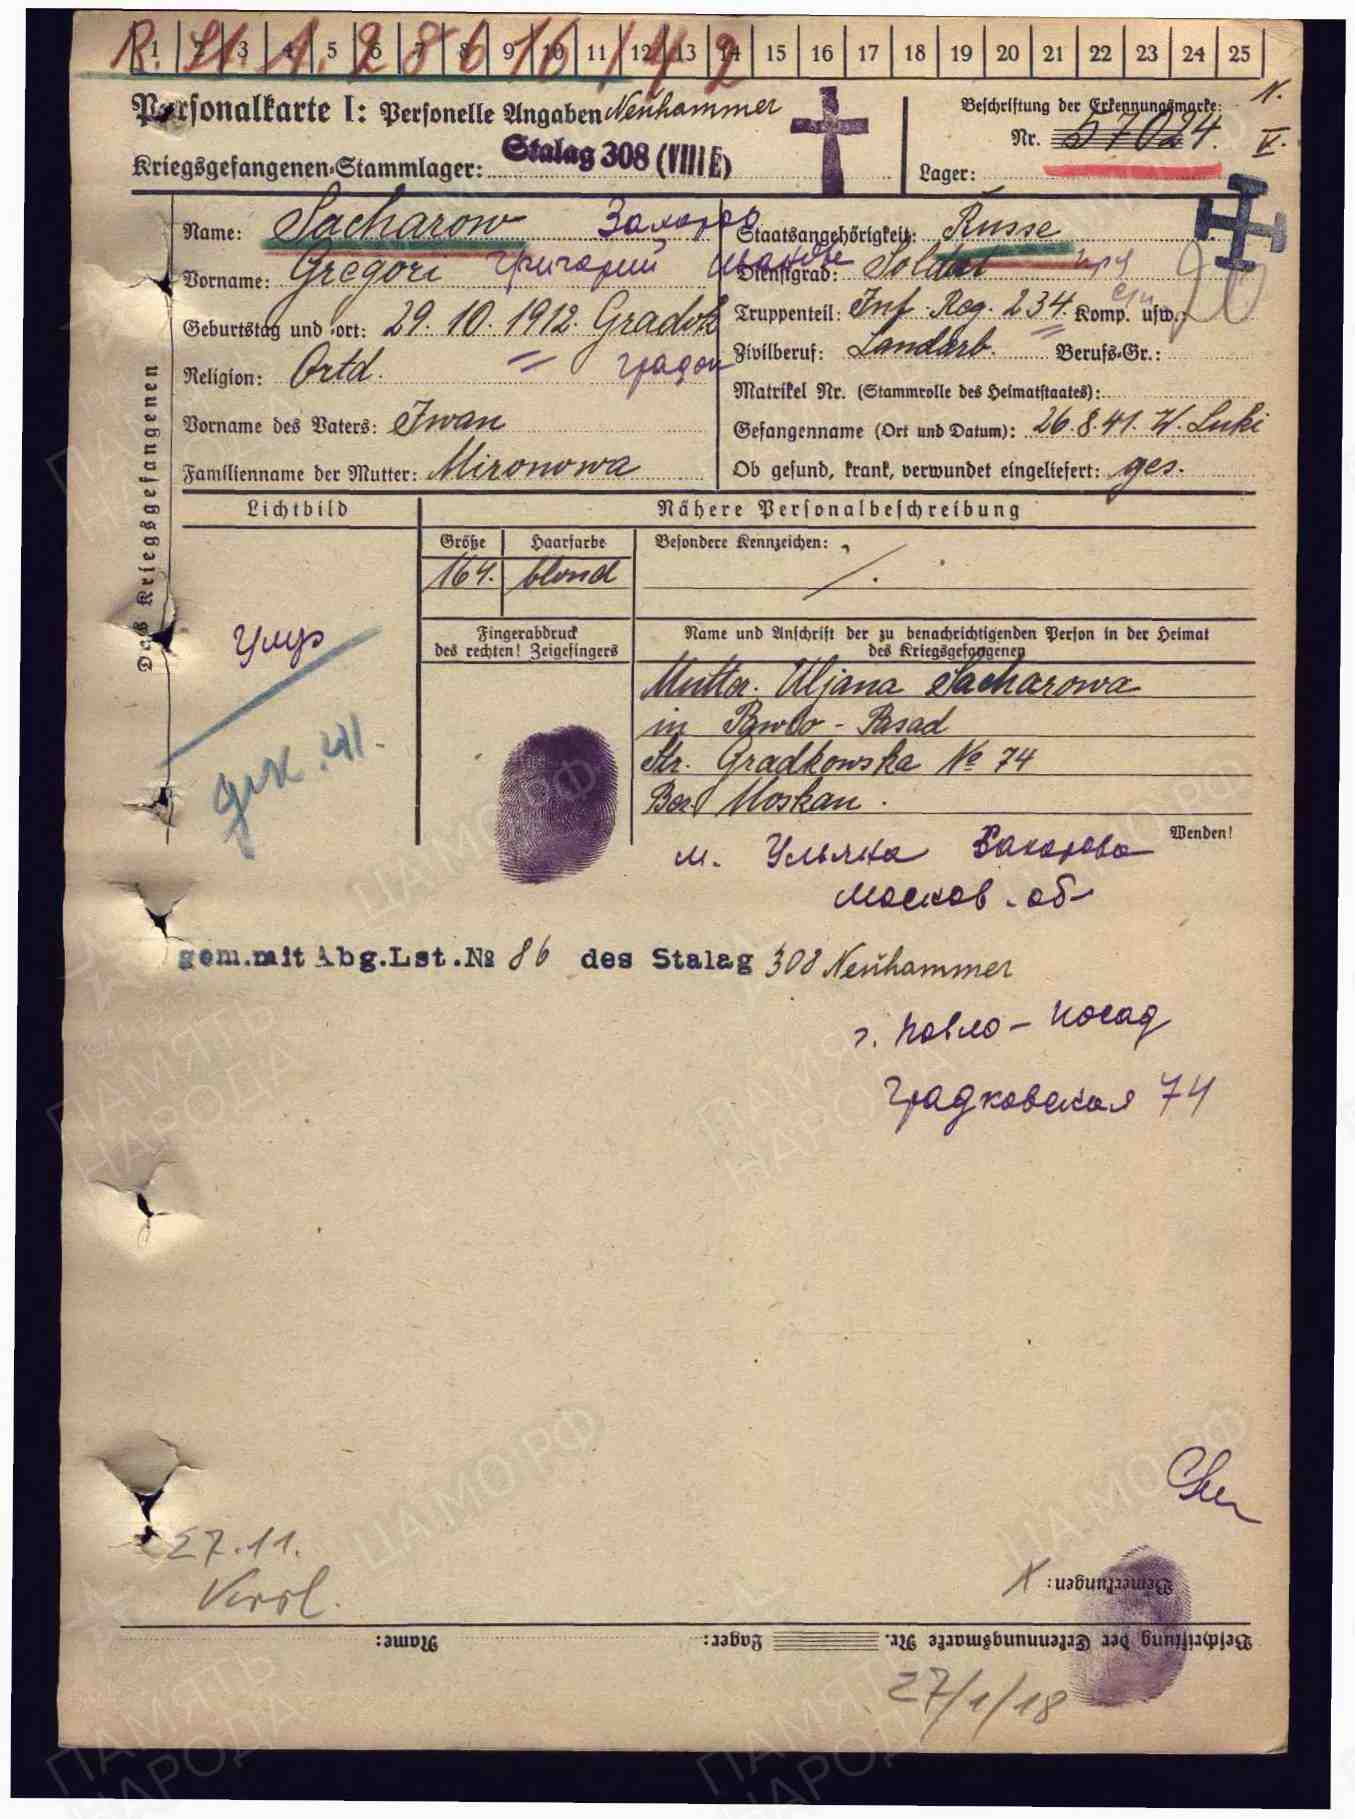 1 2 3 4 5 6 7 8 9 10 11 12 13 14 15 16 17 18 19 20 21 22 23 24 25
Personalkarte I: Personelle Angaben Neuhammer
Beschriftung der Erkennungsmarke:
Nr. 57024. V.
Kriegsgefangenen-Stammlager: Stalag 308 (VIII E)
Lager:
Name: Sacharow Захаров
Staatsangehörigkeit: Russe
Vorname: Gregori Григорий Иванов
Dienstgrad: Soldat
Geburtstag und -ort: 29. 10. 1912. Gradok
Truppenteil: Inf. Reg. 234. Komp. usw.:
Religion: Ortd. градок
Zivilberuf: Landarb. Berufs-Gr.:
Matrikel Nr. (Stammrolle des Heimatstaates):
Vorname des Vaters: Iwan
Gefangenname (Ort und Datum): 26.8.41. W. Luki
Familienname der Mutter: Mironowa
Ob gesund, krank, verwundet eingeliefert: ges.
Des Kriegsgefangenen
Lichtbild
Nähere Personalbeschreibung
Größe Haarfarbe
Besondere Kennzeichen:
164. blond
Fingerabdruck
des rechten! Zeigefingers
Name und Anschrift der zu benachrichtigenden Person in der Heimat
des Kriegsgefangenen
Mutter. Uljana Sacharowa
in Pawlo - Pasad
Str. Gradkowska № 74
Ber. Moskau.
Wenden!
дек. 41.
м. Ульяна Захарова
Москов. об-
gem.mit Abg.Lst.№ 86 des Stalag 308 Neuhammer
г. Павло - Посад
Градковская 74
27.11.
Bemerkungen: X
Beschriftung der Erkennungsmarke Nr. Lager: Name:
27/1/18
ПАМЯТЬ НАРОДА
ЦАМО.РФ